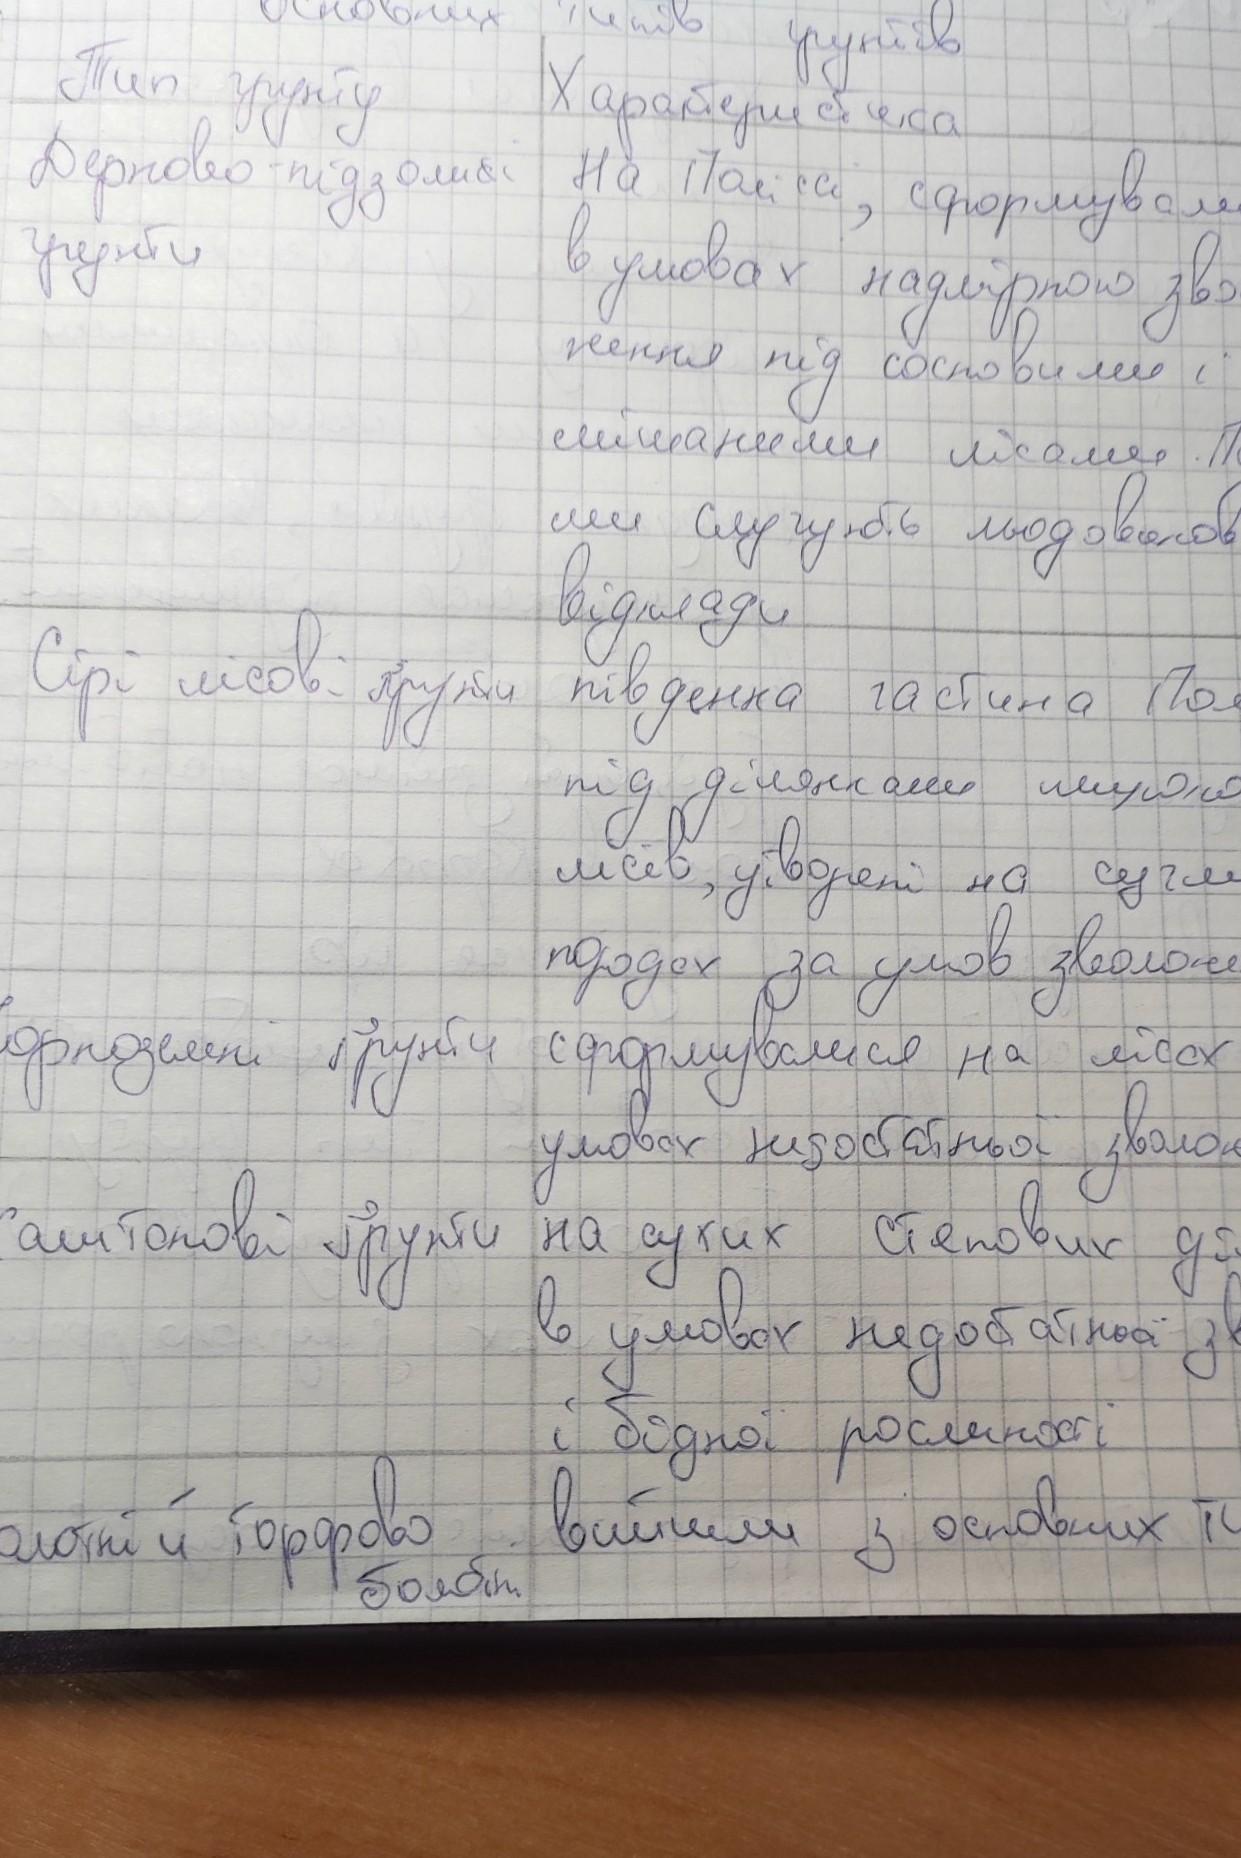 основних типів ґрунтів
Тип ґрунту Характеристика
Дерново-підзолисті На Поліссі, сформували
ґрунти в умовах надмірного зво
ження під сосновими і
мішаними лісами. По
ми слугують льодовиков
відклади
Сірі лісові ґрунти південна частина Пол
під ділянками широко
лісів, утворені на сугли
породах за умов зволоже
Чорноземні ґрунти сформувалися на лісах
умовах недостатньої зволож
Каштанові ґрунти на сухих степових діл
в умовах недостатньої зв
і бідної рослиності
олотні й торфово
вийшли з основних ти